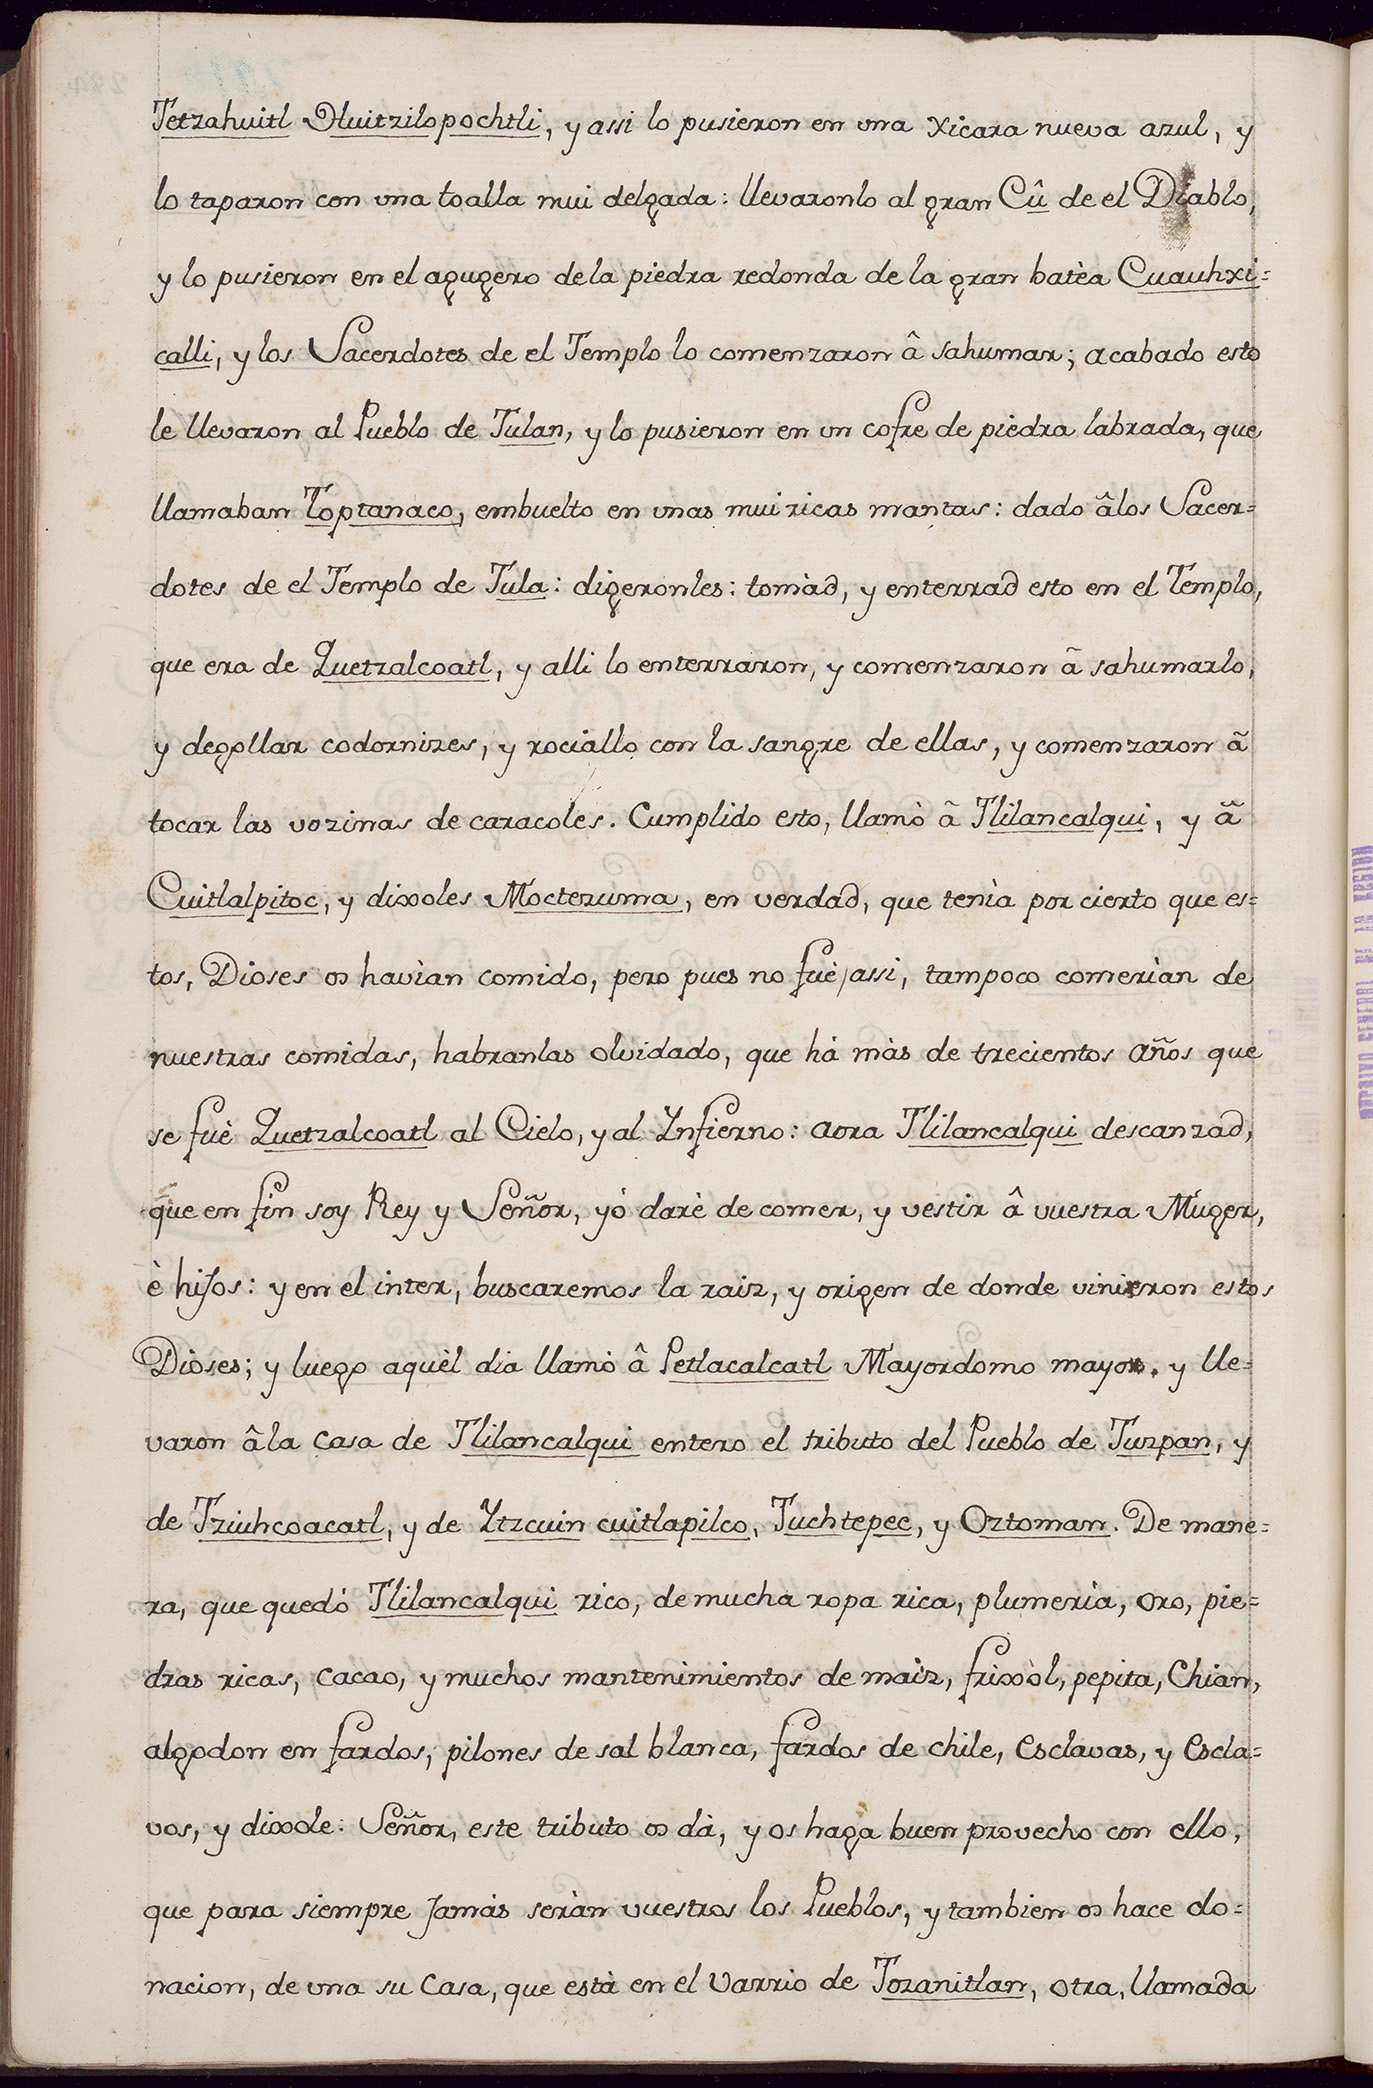 Tetzahuitl Huitzilopochtli, y assi lo pusieron en vna xicara nueva azul, y
lo taparon con vna toalla mui delgada: llevaronlo al gran Cû de el Diablo,
y lo pusieron en el agugero dela piedra redonda de la gran batèa Cuauhxi=
calli, y los Sacerdotes de el Templo lo comenzaron â sahumar; acabado esto
le llevaron al Pueblo de Tulan, y lo pusieron en vn cofre de piedra labrada, que
llamaban Toptanaco, embuelto en vnas mui ricas mantas: dado âlos Sacer=
dotes de el Templo de Tula: digeronles: tomàd, y enterrad esto en el Templo,
que era de Quetzalcoatl, y alli lo enterraron, y comenzaron ã sahumarlo,
y degollar codornizes, y rociallo con la sangre de ellas, y comenzaron ã
tocar las vozinas de caracoles. Cumplido esto, llamò ã Tlilancalqui, y ã
Cuitlalpitoc, y dixoles Moctezuma, en verdad, que tenìa por cierto que es=
tos, Dioses os havìan comido, pero pues no fuè assi, tampoco comerìan de
nuestras comidas, habranlas olvidado, que hà màs de trecientos años que
se fuè Quetzalcoatl al Cielo, y al Ynfierno: aora Tlilancalqui descanzad,
que en fin soy Rey y Señor, yò darè de comer, y vestir â vuestra Muger,
è hiJos: y en el inter, buscaremos la raiz, y origen de donde vinieron estos
Dioses; y luego aquèl dia llamò â Petlacalcatl Mayordomo mayor. y lle=
varon âla Casa de Tlilancalqui entero el tributo del Pueblo de Tuzpan, y
de Tziuhcoacatl, y de Ytzcuin cuitlapilco, Tuchtepec, y Oztoman. De mane=
ra, que quedò Tlilancalqui rico, de mucha ropa rica, plumerìa, oro, pie=
dras ricas, cacao, y muchos mantenimientos de maìz, frixòl, pepita, Chian,
algodon en fardos, pilones de sal blanca, fardos de chile, Esclavas, y Escla=
vos, y dixole: Señor, este tributo os dà, y os haga buen provecho con ello,
que para siempre Jamàs seràn vuestros los Pueblos, y tambien os hace do=
nacion, de vna su Casa, que està en el Varrio de Tozanitlan, otra, llamada